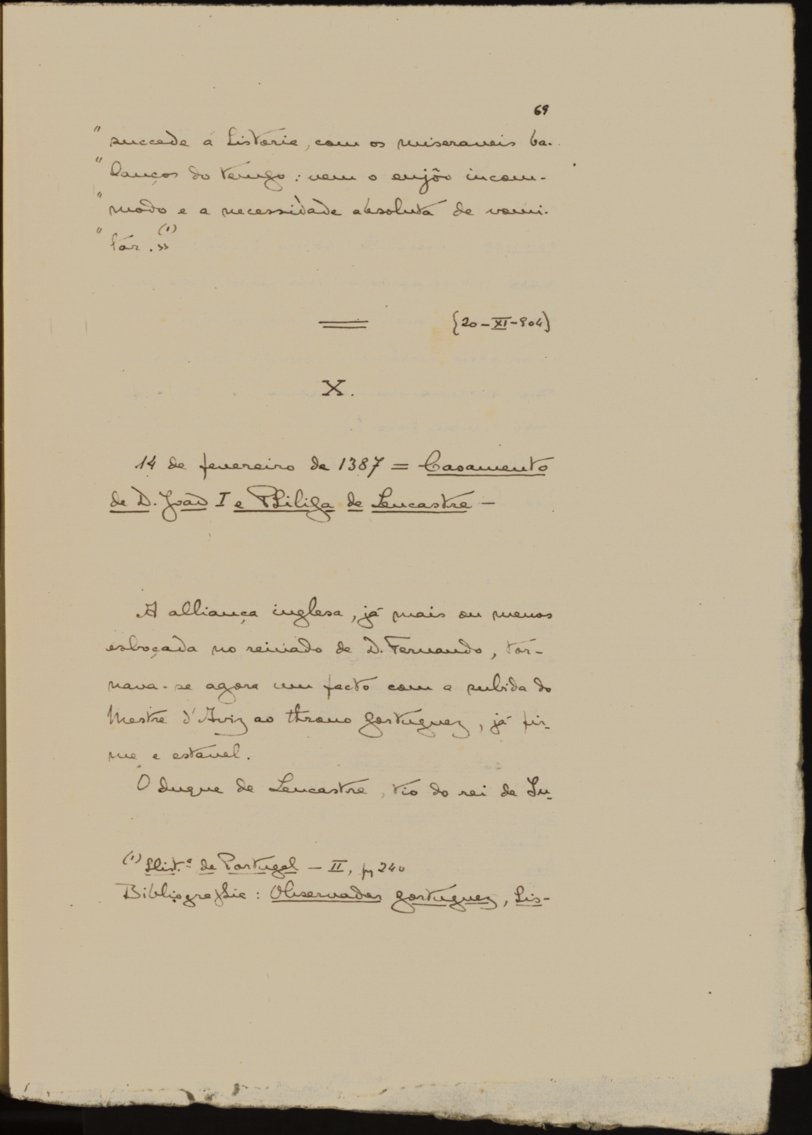 69
" succede á historia, com os miseraveis ba-
" lanços do tempo: vem o enjôo incom-
" modo e a necessidade absoluta de vomi-
" tar.» (1)
(20-XI-904)
X.
14 de fevereiro de 1387 = Casamento
de D. João I e Philipa de Lencastre -
A alliança inglesa, já mais ou menos
esboçada no reinado de D. Fernando, tor-
nava-se agora um facto com a subida do
Mestre d'Aviz ao throno portuguez, já fir-
me e estavel.
O duque de Lencastre, tio do rei de In-
(1) Hist.ª de Portugal - II, pg 240
Bibliographia: Observador portuguez, Lis-